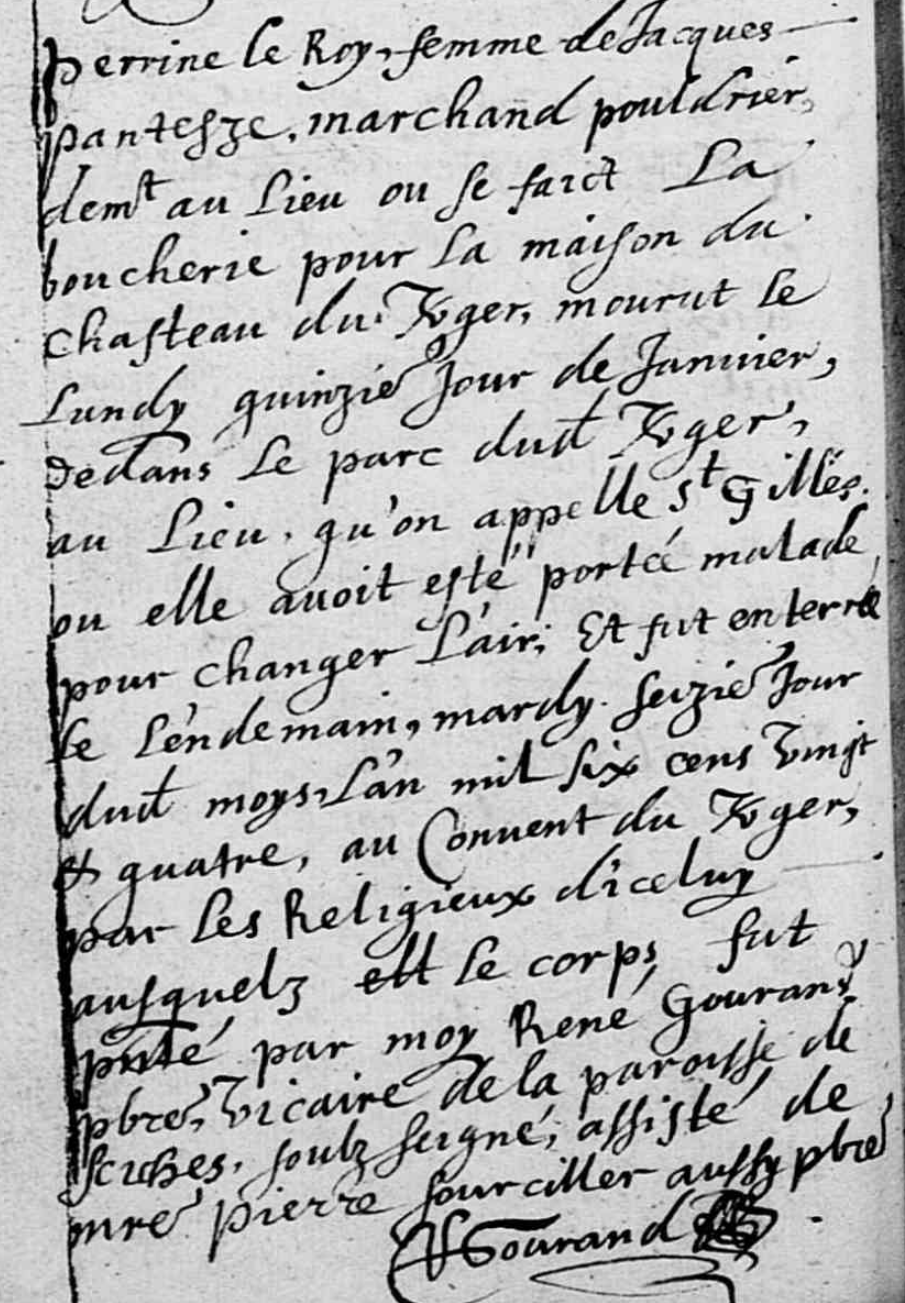 perrine le Roy, femme de Jacques
pantesze, marchand pouldrier,
demt au lieu ou se faict La
boucherie pour La maison du
chasteau du Vger, mourut le
Lundy quinzie Jour de Januier,
dedans Le parc dud Vger,
au Lieu, qu'on appelle St Gilles.
ou elle auoit esté portée malade,
pour changer L'air; Et fut enterrée
le L'endemain, mardy. seizie Jour
dud moys, L'an mil six cens vingt
& quatre, au Conuent du Vger,
par les Religieux d'iceluy
ausquelz le corps, fut
pnté par moy René Gourand
pbre, vicaire de la paroisse de
soubz signé, assisté de
mre pierre sourciller aussy pbre
Gourand